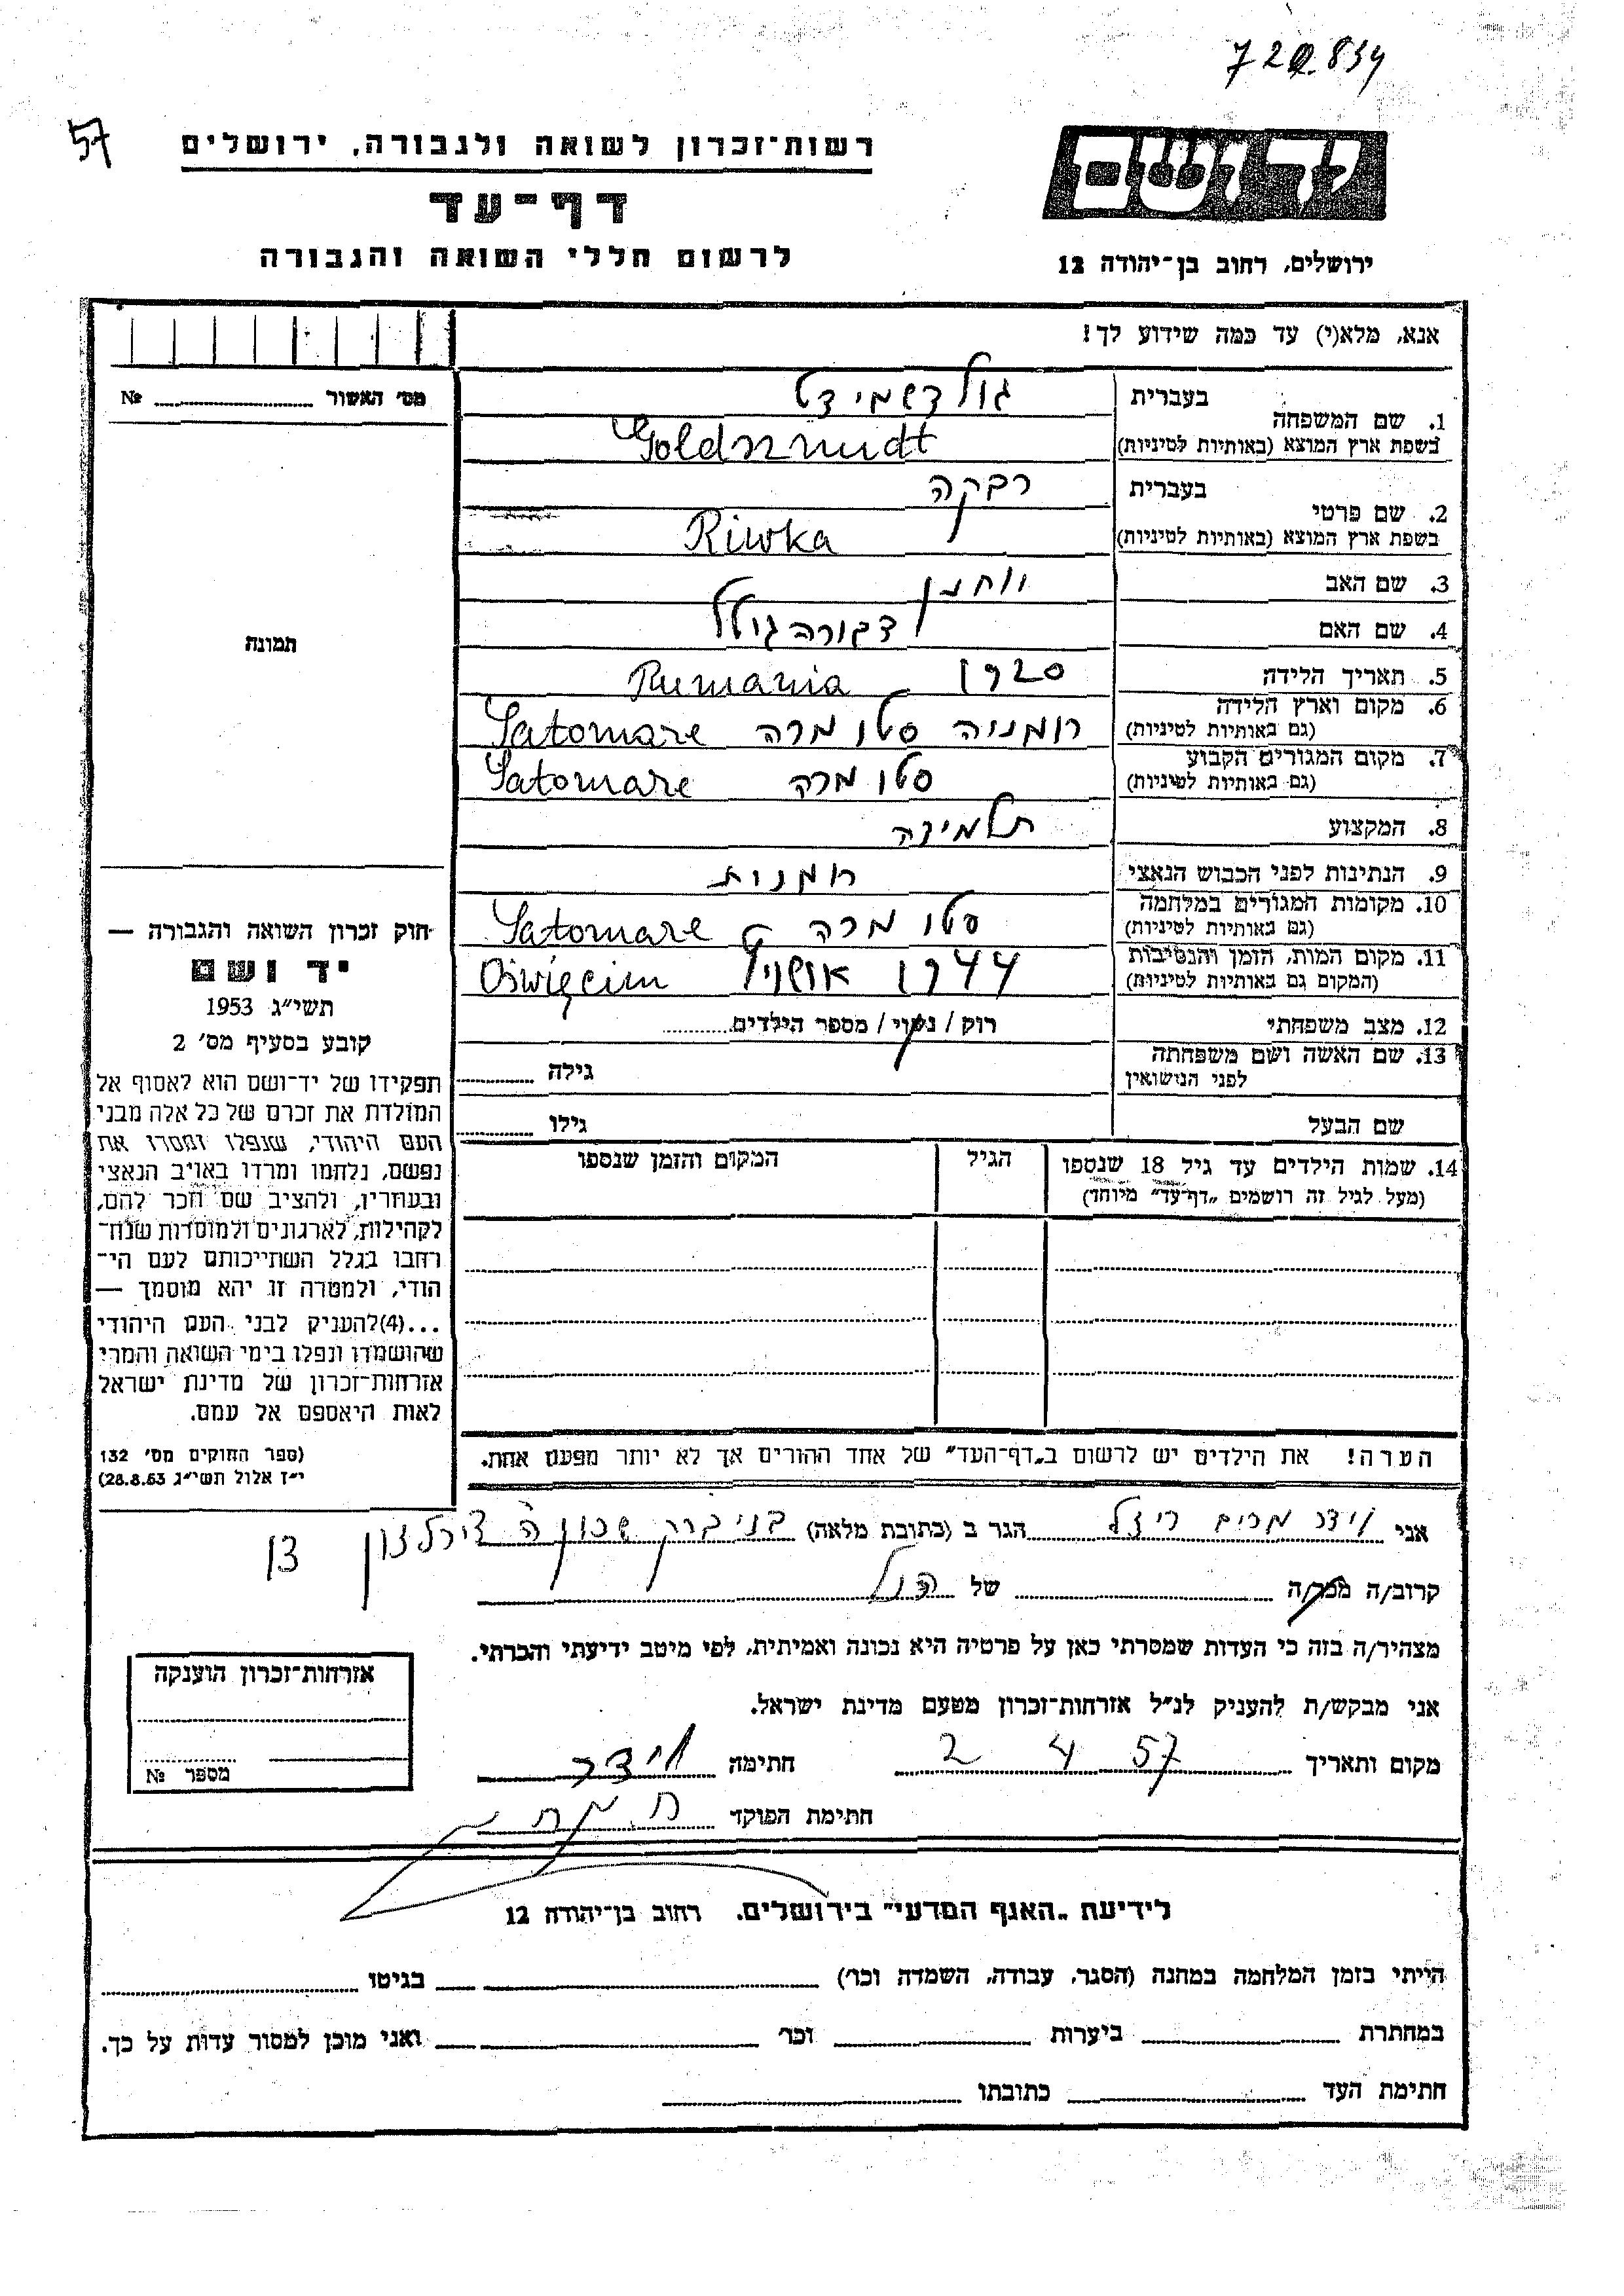 720.834
57
רשות־זכרון לשואה ולגבורה, ירושלים
דף־עד
לרשום חללי השואה והגבורה
יד ושם
ירושלים, רחוב בן־יהודה 12
אנא, מלא(י) עד כמה שידוע לך!
מס׳ האשור № 
תמונה
1. שם המשפחה בעברית גולדשמידט
בשפת ארץ המוצא (באותיות לטיניות) Goldszmidt
2. שם פרטי בעברית רבקה
בשפת ארץ המוצא (באותיות לטיניות) Riwka
3. שם האב יוחנן
4. שם האם דבורה גיטל
5. תאריך הלידה 1920 Rumania
6. מקום וארץ הלידה (גם באותיות לטיניות) רומניה סטו מרה Satomare
7. מקום המגורים הקבוע (גם באותיות לטיניות) סטו מרה Satomare
8. המקצוע תלמידה
9. הנתינות לפני הכבוש הנאצי רומנית
10. מקומות המגורים במלחמה (גם באותיות לטיניות) סטו מרה Satomare
11. מקום המות, הזמן והנסיבות (המקום גם באותיות לטיניות) 1944 אושויץ Oświęcim
12. מצב משפחתי רוק / נשוי / מספר הילדים
13. שם האשה ושם משפחתה לפני הנושואין גילה
שם הבעל גילו
14. שמות הילדים עד גיל 18 שנספו הגיל המקום והזמן שנספו
(מעל לגיל זה רושמים „דף־עד״ מיוחד)
הערה! את הילדים יש לרשום ב„דף־העד״ של אחד ההורים אך לא יותר מפעם אחת.
חוק זכרון השואה והגבורה —
יד ושם
תשי״ג 1953
קובע בסעיף מס׳ 2
תפקידו של יד־ושם הוא לאסוף אל
המולדת את זכרם של כל אלה מבני
העם היהודי, שנפלו ומסרו את
נפשם, נלחמו ומרדו באויב הנאצי
ובעוזריו, ולהציב שם וזכר להם,
לקהילות, לארגונים ולמוסדות שנח־
רחבו בגלל השתייכותם לעם הי־
הודי, ולמטרה זו יהא מוסמך —
...(4)להעניק לבני העם היהודי
שהושמדו ונפלו בימי השואה והמרי
אזרחות־זכרון של מדינת ישראל
לאות היאספם אל עמם.
(ספר החוקים מס׳ 132
י״ז אלול תשי״ג 28.8.53)
אני וידר מרים ריזל הגר ב (כתובת מלאה) בני ברק שכון ה
קרוב/ה מכר/ה של הנ״ל
מצהיר/ה בזה כי העדות שמסרתי כאן על פרטיה היא נכונה ואמיתית, לפי מיטב ידיעתי והכרתי.
אני מבקש/ת להעניק לנ״ל אזרחות־זכרון מטעם מדינת ישראל.
מקום ותאריך 2 4 57 חתימה וידר
חתימת הפוקד
אזרחות־זכרון הוענקה
מספר №
לידיעת „האגף המדעי״ בירושלים, רחוב בן־יהודה 12
הייתי בזמן המלחמה במחנה (הסגר, עבודה, השמדה וכו׳) בגיטו
במחתרת ביערות וכו׳ ואני מוכן למסור עדות על כך.
חתימת העד כתובתו